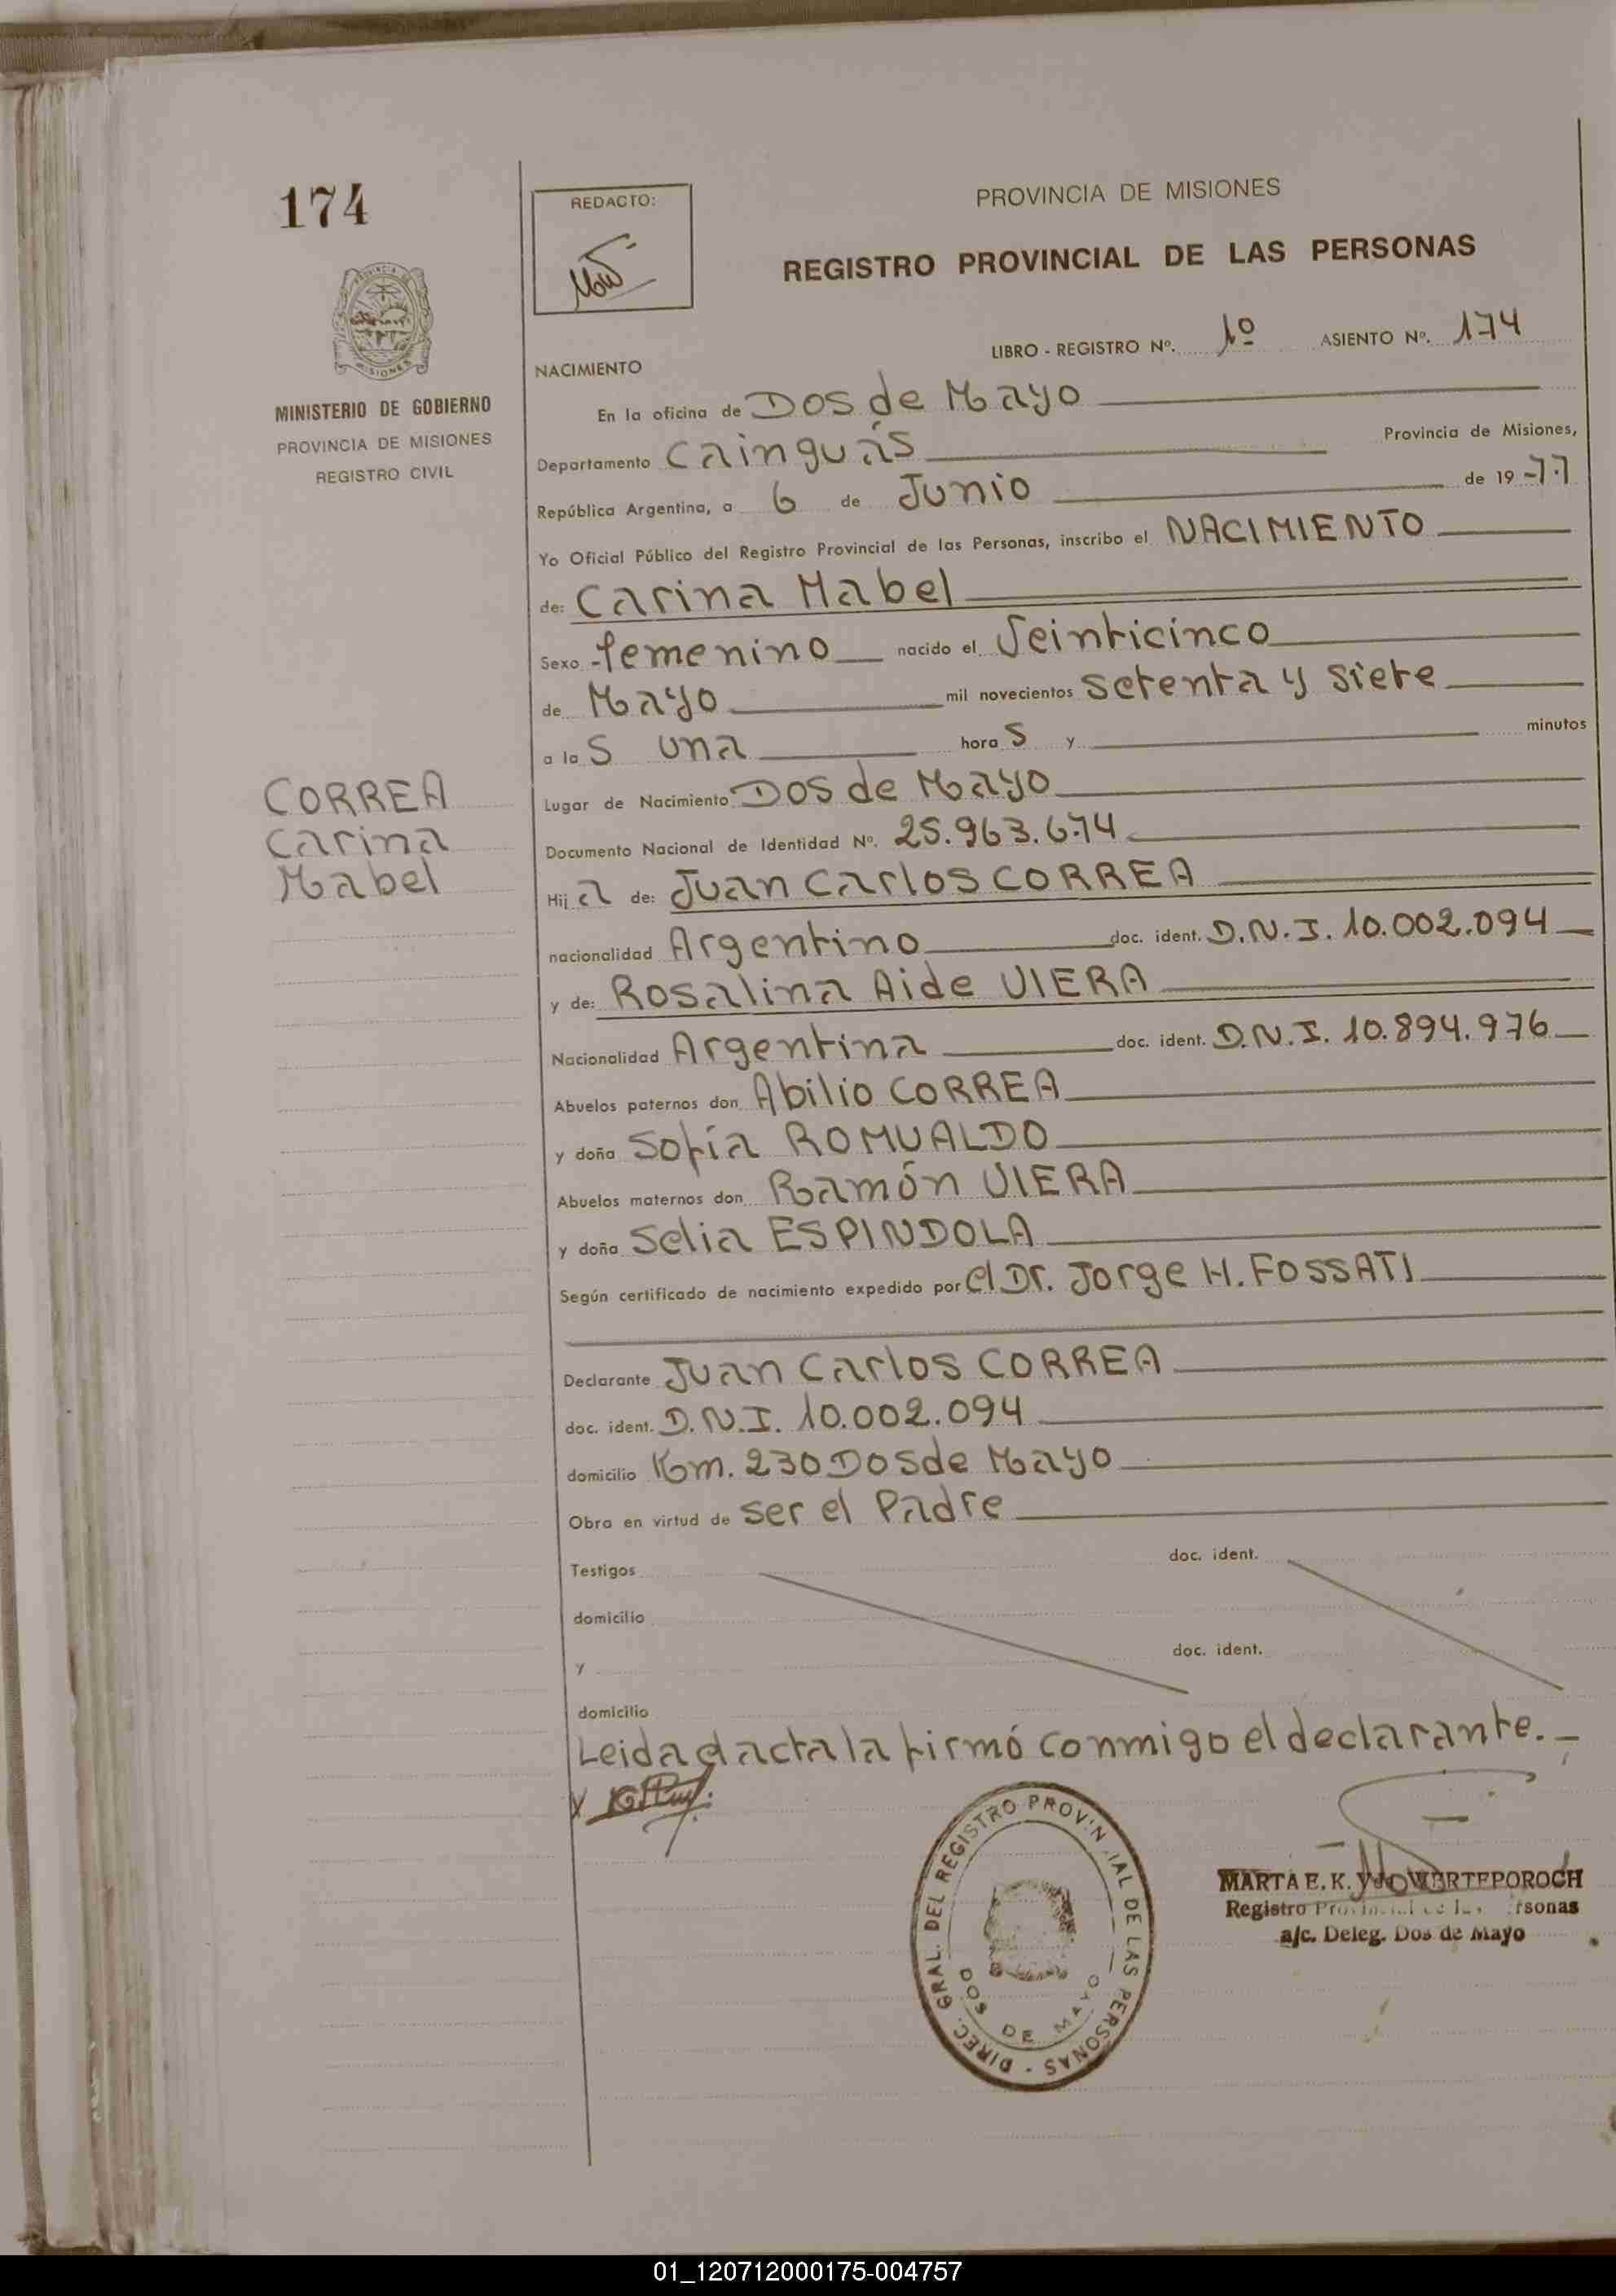 174
PROVINCIA DE MISIONES
MINISTERIO DE GOBIERNO
PROVINCIA DE MISIONES
REGISTRO CIVIL
CORREA
Carina
Mabel
REDACTO:
PROVINCIA DE MISIONES
REGISTRO PROVINCIAL DE LAS PERSONAS
LIBRO - REGISTRO Nº. 1º ASIENTO Nº. 174
NACIMIENTO
En la oficina de Dos de Mayo
Departamento Cainguás Provincia de Misiones,
República Argentina, a 6 de Junio de 1977
Yo Oficial Público del Registro Provincial de las Personas, inscribo el NACIMIENTO
de: Carina Mabel
Sexo femenino nacido el Veinticinco
de Mayo mil novecientos setenta y siete
a las una horas y minutos
Lugar de Nacimiento Dos de Mayo
Documento Nacional de Identidad Nº. 25.963.674
Hija de: Juan Carlos CORREA
nacionalidad Argentino doc. ident. D.N.I. 10.002.094
y de: Rosalina Aide VIERA
Nacionalidad Argentina doc. ident. D.N.I. 10.894.976
Abuelos paternos don Abilio CORREA
y doña Sofía ROMUALDO
Abuelos maternos don Ramón VIERA
y doña Selia ESPINDOLA
Según certificado de nacimiento expedido por el Dr. Jorge H. FOSSATI
Declarante Juan Carlos CORREA
doc. ident. D.N.I. 10.002.094
domicilio Km. 230 Dos de Mayo
Obra en virtud de ser el Padre
Testigos doc. ident.
domicilio
y doc. ident.
domicilio
Leida el acta la firmó conmigo el declarante.
DIREC. GRAL. DEL REGISTRO PROVINCIAL DE LAS PERSONAS -
DOS DE MAYO
MARTA E. K.
Registro Provincial de las Personas
a/c. Deleg. Dos de Mayo
01_120712000175-004757